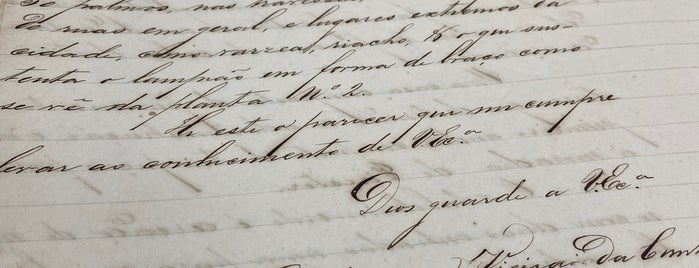 30 palmos, nas travessas,
de ruas em geral, e lugares extremos da
cidade, como varzea, riacho, & o que sus-
tenta o lampião em forma de braço como
se vê na planta Nº 2.
He este o parecer que me cumpre
levar ao conhecimento de V.Exª
Deos guarde a V.Exª
da Cunha